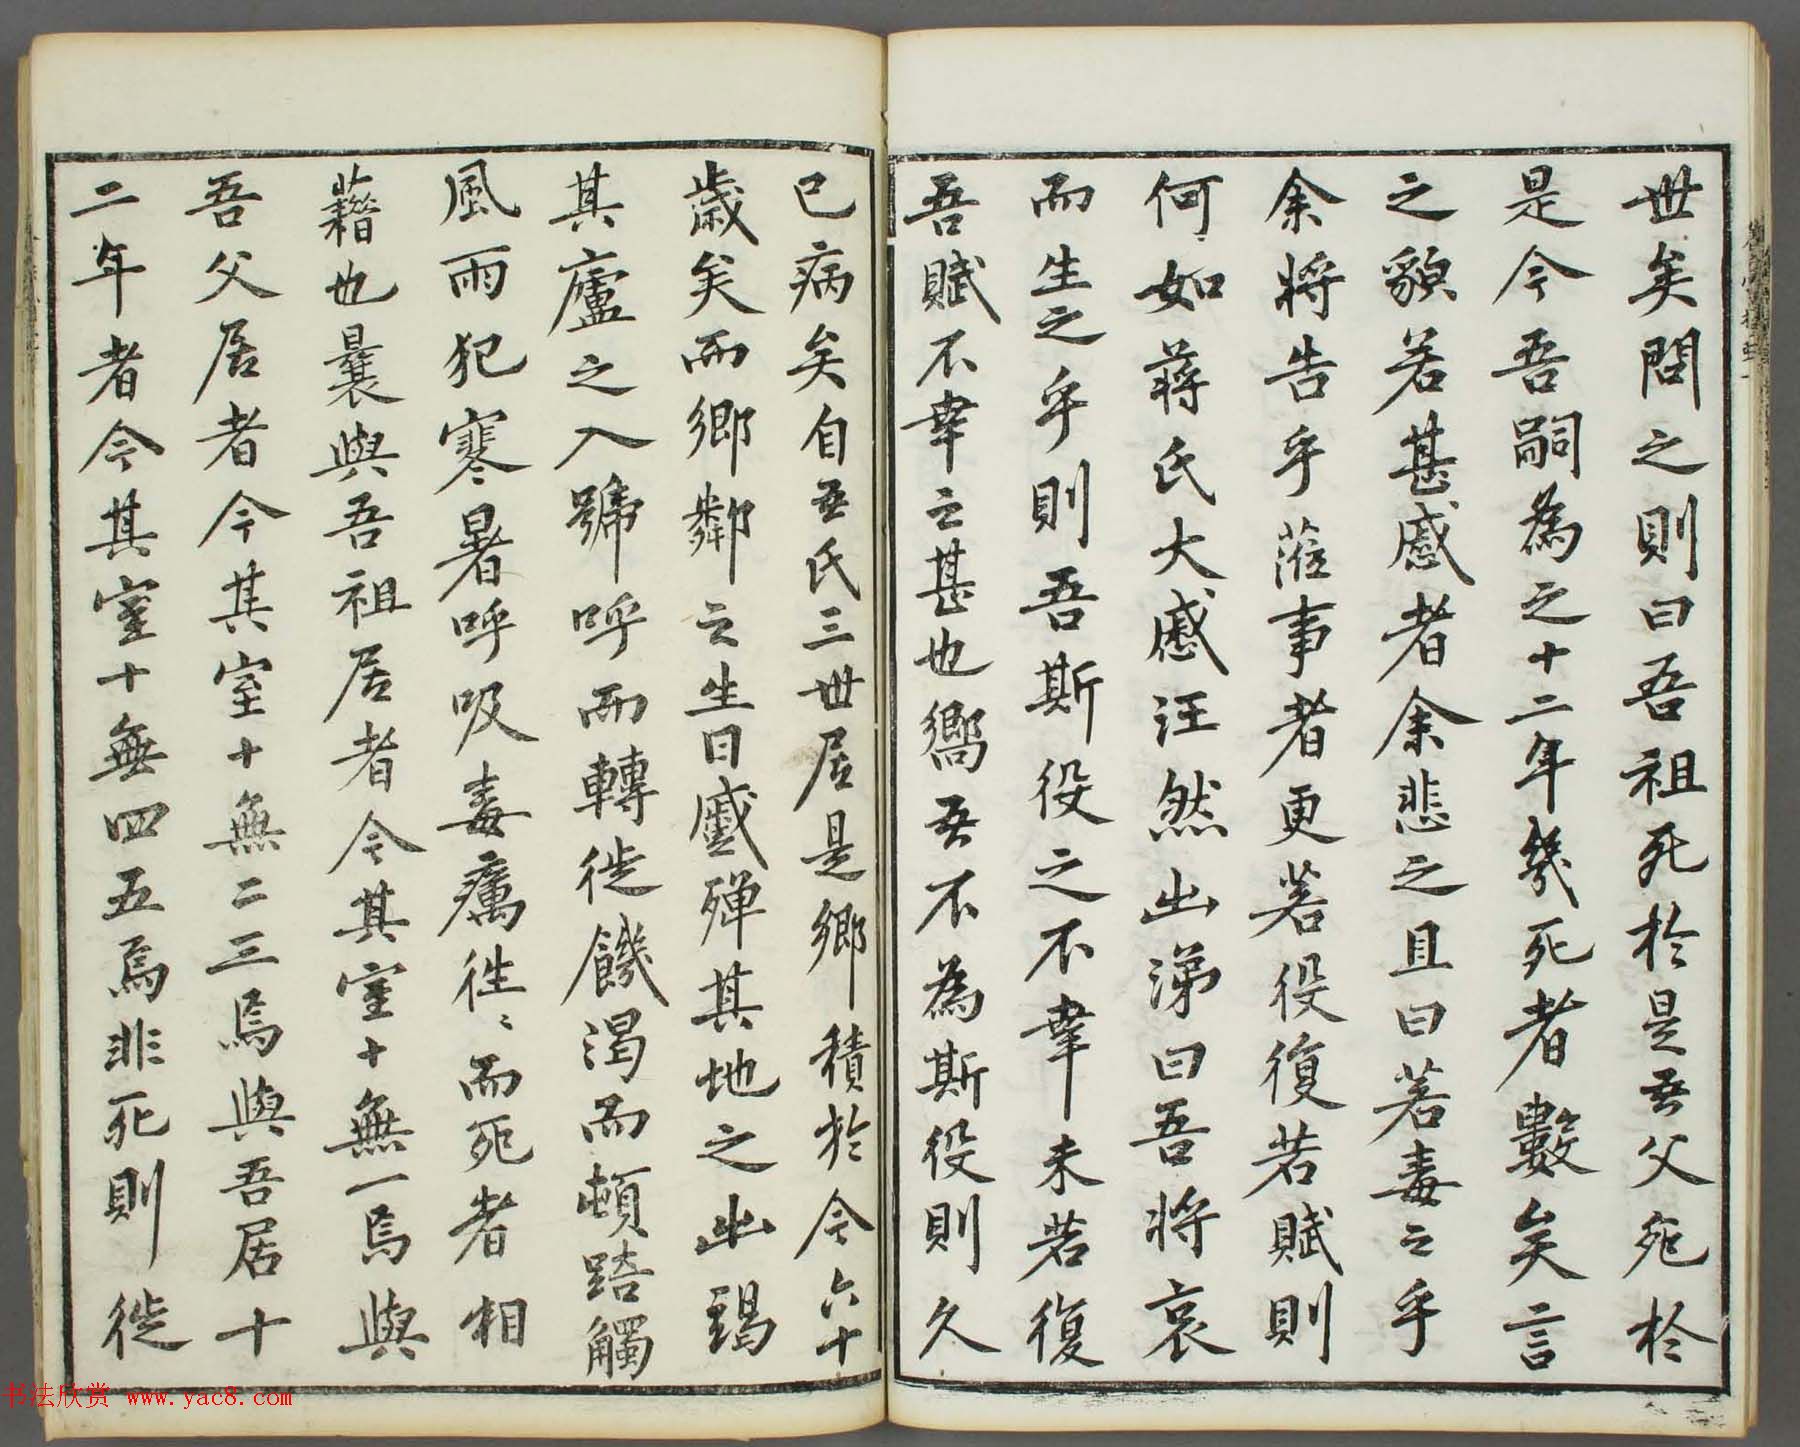 世矣問之則曰吾祖死於是吾父死於
是今吾嗣為之十二年幾死者數矣言
之貌若甚慼者余悲之且曰若毒之乎
余將告乎蒞事者更若役復若賦則
何如蔣氏大慼汪然出涕曰吾將哀
而生之乎則吾斯役之不幸未若復
吾賦不幸之甚也嚮吾不為斯役則久
已病矣自吾氏三世居是鄉積於今六十
歲矣而鄉鄰之生日蹙殫其地之出竭
其廬之入號呼而轉徙饑渴而頓踣觸
風雨犯寒暑呼吸毒癘往〻而死者相
藉也曩與吾祖居者今其室十無一焉與
吾父居者今其室十無二三焉與吾居十
二年者今其室十無四五焉非死則徙
书法欣赏 www.yac8.com